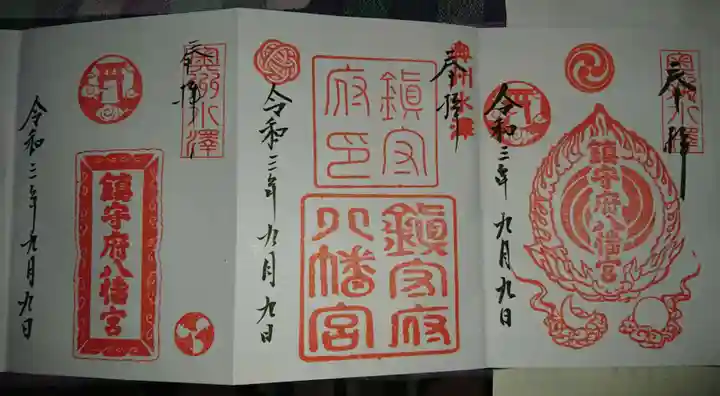 奉拝
奥州水澤
鎮守府八幡宮
令和三年九月九日
奉拝
奥州水澤
鎮守府印
鎮守府八幡宮
令和三年九月九日
奉拝
奥州水澤
鎮守府八幡宮
令和三年九月九日